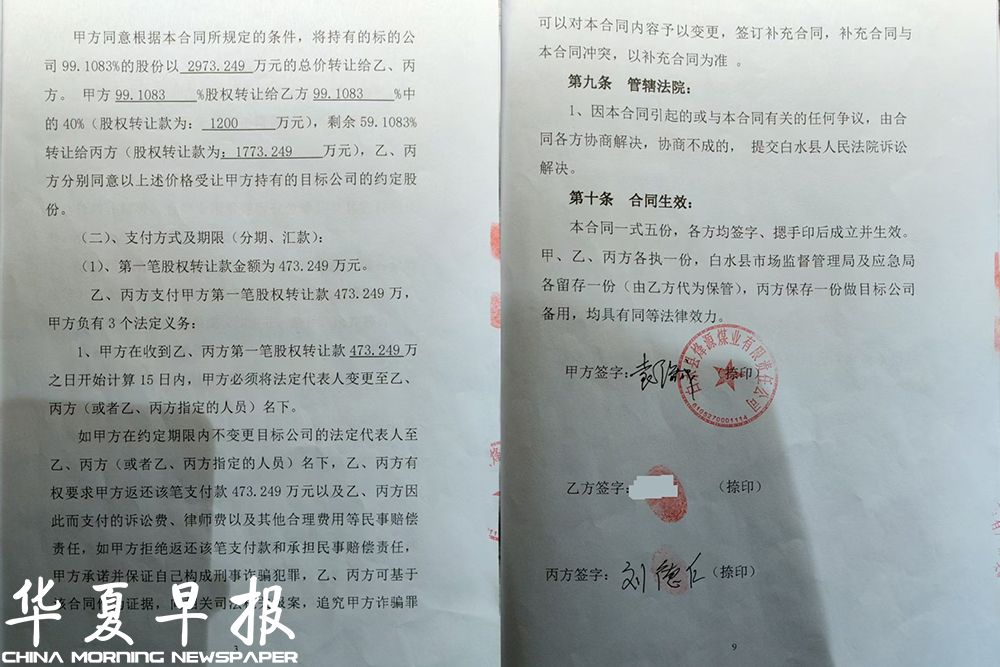 甲方同意根据本合同所规定的条件，将持有的标的公
司99.1083%的股份以 2973.249 万元的总价转让给乙、丙
方。 甲方 99.1083 %股权转让给乙方 99.1083 %中
的40%（股权转让款为： 1200 万元），剩余59.1083%
转让给丙方（股权转让款为：1773.249 万元），乙、丙
方分别同意以上述价格受让甲方持有的目标公司的约定股
份。
（二）、支付方式及期限（分期、汇款）：
（1）、第一笔股权转让款金额为473.249万元。
乙、丙方支付甲方第一笔股权转让款473.249万，
甲方负有3个法定义务：
1、甲方在收到乙、丙方第一笔股权转让款 473.249 万
之日开始计算15日内，甲方必须将法定代表人变更至乙、
丙方（或者乙、丙方指定的人员）名下。
如甲方在约定期限内不变更目标公司的法定代表人至
乙、丙方（或者乙、丙方指定的人员）名下，乙、丙方有
权要求甲方返还该笔支付款473.249万元以及乙、丙方因
此而支付的诉讼费、律师费以及其他合理费用等民事赔偿
责任，如甲方拒绝返还该笔支付款和承担民事赔偿责任，
甲方承诺并保证自己构成刑事诈骗犯罪，乙、丙方可基于
该合同 证据， 关司法 报案，追究甲方诈骗罪
3
华夏早报
CHINA MORNING NEWSPAPER
可以对本合同内容予以变更，签订补充合同，补充合同与
本合同冲突，以补充合同为准 。
第九条 管辖法院：
1、因本合同引起的或与本合同有关的任何争议，由合
同各方协商解决，协商不成的， 提交白水县人民法院诉讼
解决。
第十条 合同生效：
本合同一式五份，各方均签字、摁手印后成立并生效。
甲、乙、丙方各执一份，白水县市场监督管理局及应急局
各留存一份（由乙方代为保管），丙方保存一份做目标公司
备用，均具有同等法律效力。
甲方签字： （捺印）
县烽源煤业有限责任公司
6105270001114
乙方签字： （捺印）
丙方签字：刘德仁（捺印）
9